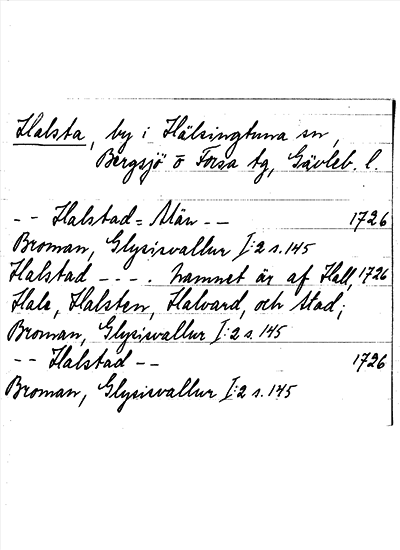 Halsta, by i Hälsingtuna sn,
Bergsjö o Forsa tg, Gävleb. l.
-- Halstad = Mån -- 1726
Broman, Glysisvallur I:2 s. 145
Halstad - - - . Namnet är af Hall, 1726
Hale, Halsten, Halvard, och Stad;
Broman, Glysisvallur I:2 s. 145
-- Halstad -- 1726
Broman, Glysisvallur I:2 s. 145